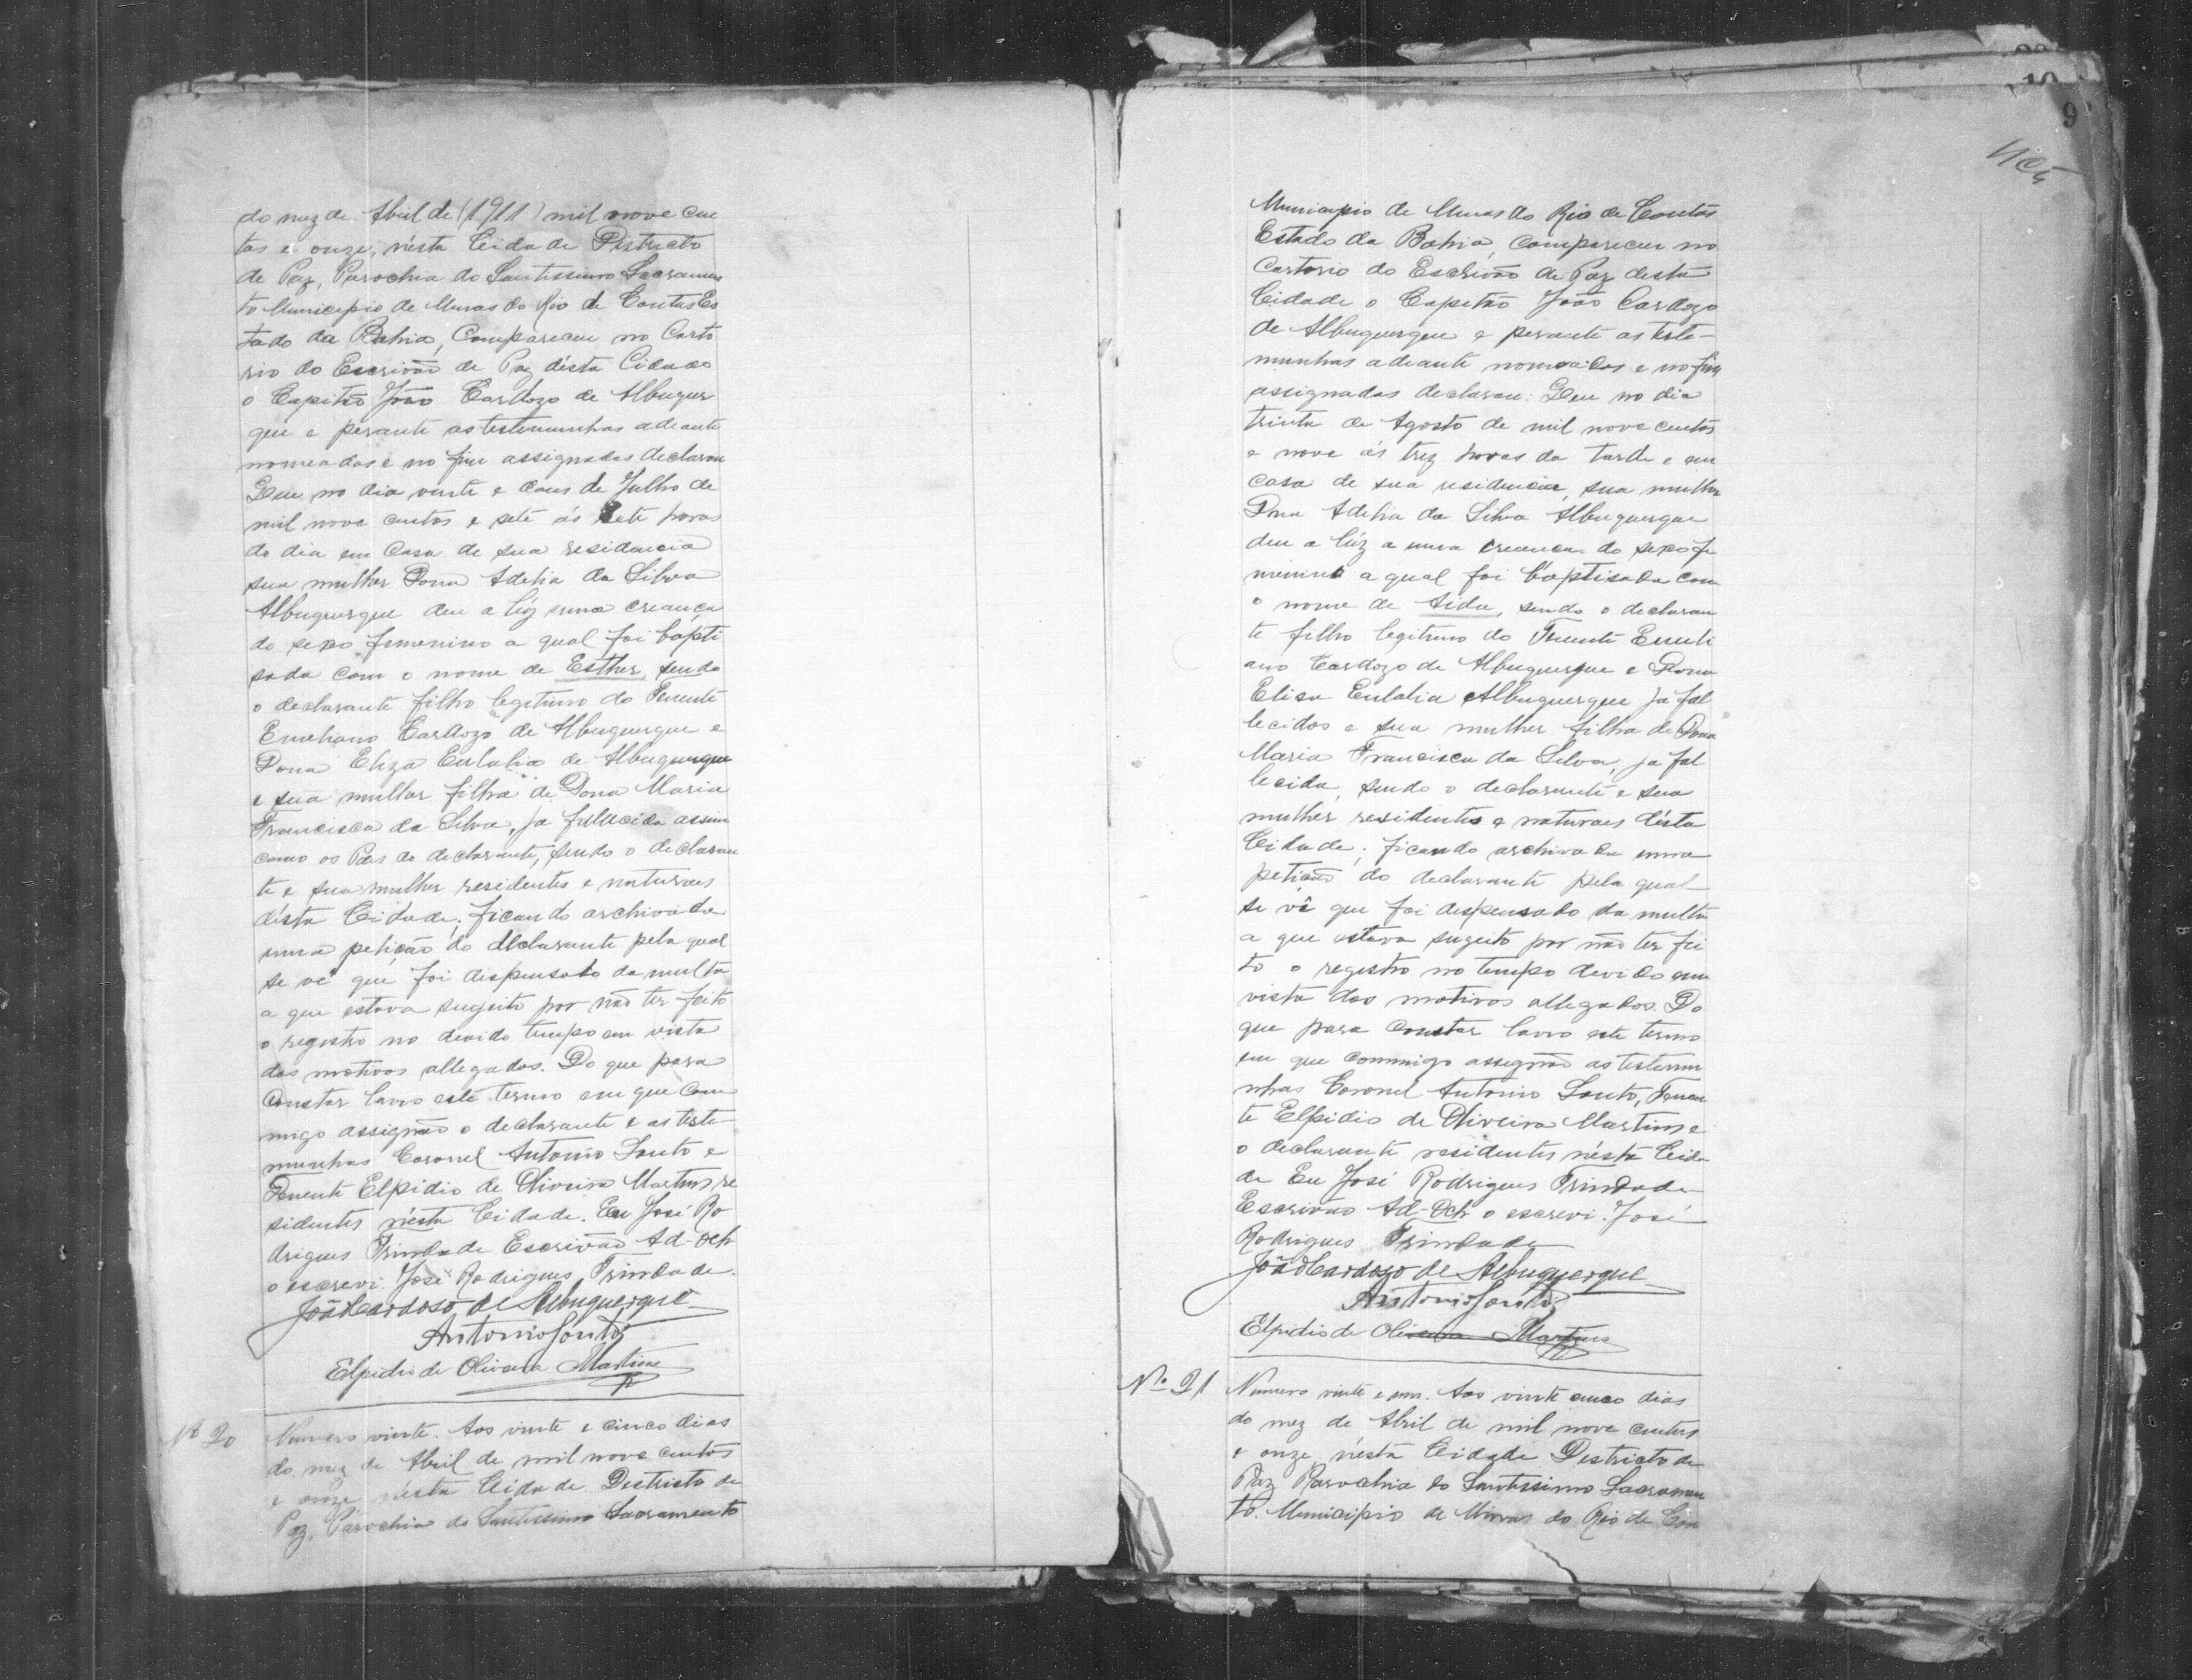 do mez de Abril de (1911) mil nove cen
tos e onze, nésta Cidade Districto
de Paz, Parochia do Santissimo Sacramen
to Municipio de Minas do Rio de Contas Es
tado da Bahia, Compareceu no Carto
rio do Escrivão de Paz désta Cidade
o Capitão João Cardozo de Albuquer
que e perante as testemunhas adeante
nomeadas e no fim assignadas declarou
Que no dia vinte e dous de Julho de
mil nove centos e sete ás sete horas
do dia em Casa de sua residencia
sua mulher Dona Adelia da Silva
Albuquerque deu a luz uma creança
do sexo femenino a qual foi bapti
sada com o nome de Esther, sendo
o declarante filho legitimo do Tenente
Emeliano Cardozo de Albuquerque e
Dona Eliza Eulalia de Albuquerque
e sua mulher filha de Dona Maria
Francisca da Silva, ja fallecida assim
como os Paes do declarante, sendo o declaran
te e sua mulher residentes e naturaes
désta Cidade; ficando archivada
uma petição do declarante pela qual
se vê que foi dispensado da multa
a que estava sugeito por não ter feito
o registro no devido tempo em vista
dos motivos allegados. Do que para
Constar lavro este termo em que com
migo assignão o declarante e as teste-
munhas Coronel Antonio Souto e
Tenente Elpidio de Oliveira Martins re
sidentes nésta Cidade. Eu José Ro
drigues Trindade Escrivão Ad-och
o escrevi. José Rodrigues Trindade.
João Cardoso de Albuquerque
Antonio Souto
Elpidio de Oliveira Martins
Nº 20
Numero vinte. Aos vinte e cinco dias
do mez de Abril de mil nove centos
e onze nésta Cidade Districto de
Paz, Parochia do Santissimo Sacramento
9
Municipio de Minas do Rio de Contas
Estado da Bahia, compareceu no
Cartorio do Escrivão de Paz desta
Cidade o Capitão João Cardozo
de Albuquerque e perante as teste-
munhas adeante nomeadas e no fim
assignadas declarou: Que no dia
trinta de Agosto de mil nove centos
e nove ás trez horas da tarde e em
casa de sua residencia, sua mulher
Dona Adelia da Silva Albuquerque
deu a lúz a uma creança do sexo fe
menino a qual foi baptisada com
o nome de Aida, sendo o declaran
te filho legitimo do Tenente Emeli
ano Cardozo de Albuquerque e Dona
Elisa Eulalia Albuquerque ja fal
lecidos e sua mulher filha de Dona
Maria Francisca da Silva, ja fal
lecida, sendo o declarante e sua
mulher residentes e naturaes désta
Cidade; ficando archivada uma
petição do declarante pela qual
se vê que foi despensado da multa
a que estava sugeito por não ter fei
to o registro no tempo devido em
vista dos motivos allegados. Do
que para Constar lavro este termo
em que commigo assignão as testemu
nhas Coronel Antonio Souto, Tenen
te Elpidio de Oliveira Martins e
o declarante residentes nésta Cida
de Eu José Rodrigues Trindade
Escrivão Ad-och o escrevi. José
Rodrigues Trindade
João Cardoso de Albuquerque
Antonio Souto
Elpidio de Oliveira Martins
Nº 21
Numero vinte e um. Aos vinte cinco dias
do mez de Abril de mil nove centos
e onze nésta Cidade Districto de
Paz Parochia do Santissimo Sacramen
to. Municipio de Minas do Rio de Con